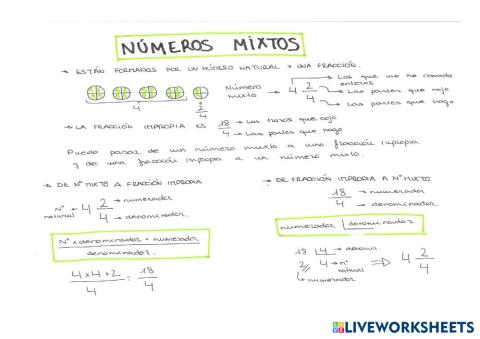 NÚMEROS MIXTOS
→ ESTÁN FORMADOS POR UN NÚMERO NATURAL Y UNA FRACCIÓN.
4
2/4
Número mixto → 4 2/4
→ Los que me he comido enteros
→ Las partes que cojo
→ Las partes que hago
→ LA FRACCIÓN IMPROPIA ES 18/4
→ Las trozos que cojo
→ Las partes que hago
Puedo pasar de un número mixto a una fracción impropia
y de una fracción impropia a un número mixto.
→ DE Nº MIXTO A FRACCIÓN IMPROPIA
Nº natural ← 4 2/4
→ numerador
→ denominador.
Nº x denominador + numerador
denominador.
4 x 4 + 2 / 4 = 18/4
→ DE FRACCIÓN IMPROPIA A Nº MIXTO
18 → numerador
4 → denominador.
numerador | denominador
18 | 4 → denomin.
2 4 → nº natural
→ numerador
⇒ 4 2/4
LIVEWORKSHEETS